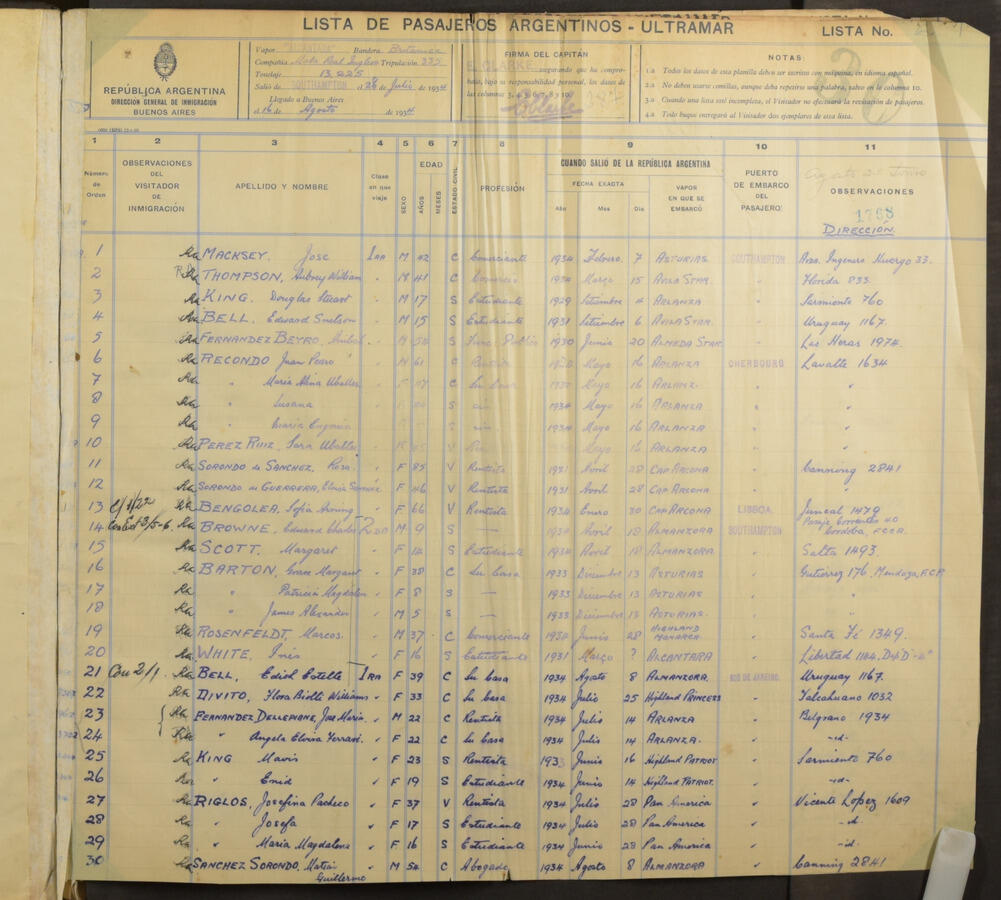 LISTA DE PASAJEROS ARGENTINOS - ULTRAMAR
LISTA No.
REPÚBLICA ARGENTINA
DIRECCION GENERAL DE INMIGRACIÓN
BUENOS AIRES
Vapor "ALCANTARA" Bandera Britanica
Compañia Mala Real Inglesa Tripulación
Tonelaje 13.225
Salió de SOUTHAMPTON el 28 de Julio de 1934
Llegado a Buenos Aires
el 16 de Agosto de 1934
FIRMA DEL CAPITÁN
E. CLARKE asegurando que ha comprobado, bajo su responsabilidad personal, los datos de las columnas 3, 4, 5, 6, 7, 8 y 10.
NOTAS:
1.a Todos los datos de esta planilla deben ser escritos con máquina, en idioma español.
2.a No deben usarse comillas, aunque deba repetirse una palabra, salvo en la columna 10.
3.a Cuando una lista esté incompleta, el Visitador no efectuará la revisación de pasajeros.
4.a Todo buque entregará al Visitador dos ejemplares de esta lista.
1 2 3 4 5 6 7 8 9 10 11
Número de Orden
OBSERVACIONES DEL VISITADOR DE INMIGRACIÓN
APELLIDO Y NOMBRE
Clase en que viaje
SEXO
EDAD
AÑOS
MESES
ESTADO CIVIL
PROFESIÓN
CUANDO SALIÓ DE LA REPÚBLICA ARGENTINA
FECHA EXACTA
Año Mes Día
VAPOR EN QUE SE EMBARCÓ
PUERTO DE EMBARCO DEL PASAJERO
OBSERVACIONES
1768
DIRECCIÓN
1 MACKSEY, Jose 1RA M 42 C Comerciante 1934 Febrero 7 ASTURIAS SOUTHAMPTON Ave. Ingeniero Huergo 33.
2 THOMPSON, Aubrey William " M 41 C Comercio 1934 Março 15 AVILA STAR " Florida 833.
3 KING, Douglas Stuart " M 17 S Estudiante 1929 Setiembre 4 ARLANZA " Sarmiento 760
4 BELL, Edward Snelson " M 15 S Estudiante 1931 Setiembre 6 AVILA STAR " Uruguay 1167.
5 FERNANDEZ BEYRO, M 1930 Junio 20 ALMEDA STAR " Las Heras 1974.
6 RECONDO Juan Pedro " M 61 C Mayo 16 ARLANZA CHERBOURG Lavalle 1634
7 " Maria F C Su Casa Mayo 16 ARLANZA " "
8 " Susana S 1934 Mayo 16 ARLANZA " "
9 " Maria Eugenia S 1934 Mayo 16 ARLANZA " "
10 PEREZ RUIZ, Sara V Mayo 16 ARLANZA " "
11 SORONDO de SANCHEZ, Rosa " F 85 V Rentista 1931 Avril 28 CAP ARCONA " Canning 2841
12 SORONDO de GUERRERA, Eloisa " F 46 V Rentista 1931 Avril 28 CAP ARCONA "
13 BENGOLEA, Sofia " F 66 V Rentista 1934 Enero 30 CAP ARCONA LISBOA Juncal 1479
14 BROWNE, Eduard Charles M 9 S — 1934 Avril 18 ALMANZORA SOUTHAMPTON Cordoba, F.C.C.A.
15 SCOTT, Margaret " F 14 S Estudiante 1934 Avril 18 ALMANZORA " Salta 1493.
16 BARTON, Grace Margaret " F 38 C Su Casa 1933 Diciembre 13 ASTURIAS " Gutierrez 176, Mendoza, F.C.P.
17 " Patricia Magdalen " F 8 S — 1933 Diciembre 13 ASTURIAS " "
18 " James Alexander " M 5 S — 1933 Diciembre 13 ASTURIAS. " "
19 ROSENFELDT, Marcos. " M 37 C Comerciante 1934 Junio 28 HIGHLAND MONARCH " Santa Fé 1349.
20 WHITE, Inis " F 16 S Estudiante 1931 Março ? ALCANTARA " Libertad 1164.
21 BELL, Edith Estelle 1RA F 39 C Su Casa 1934 Agosto 8 ALMANZORA. RIO DE JANEIRO. Uruguay 1167.
22 DIVITO, Flora Williams " F 33 C Su Casa 1934 Julio 25 Highland PRINCESS " Talcahuano 1032
23 FERNANDEZ DELLEPIANE, Jose Maria. " M 22 C Rentista 1934 Julio 14 ARLANZA " Belgrano 1934
24 " Angela Elvira Ferrari. " F 22 C Su Casa 1934 Julio 14 ARLANZA. " -id-
25 KING Mavis " F 23 S Rentista 1933 Junio 16 Highland PATRIOT " Sarmiento 760
26 " Enid " F 19 S Estudiante 1934 Junio 14 Highland PATRIOT. " -id-
27 RIGLOS, Josefina Pacheco " F 37 V Rentista 1934 Julio 28 Pan America " Vicente Lopez 1609
28 " Josefa " F 17 S Estudiante 1934 Julio 28 Pan America " -id
29 " Maria Magdalena " F 16 S Estudiante 1934 Junio 28 Pan America " id-
30 SANCHEZ SORONDO, Matias Guillermo " M 54 C Abogado 1934 Agosto 8 ALMANZORA " Canning 2841